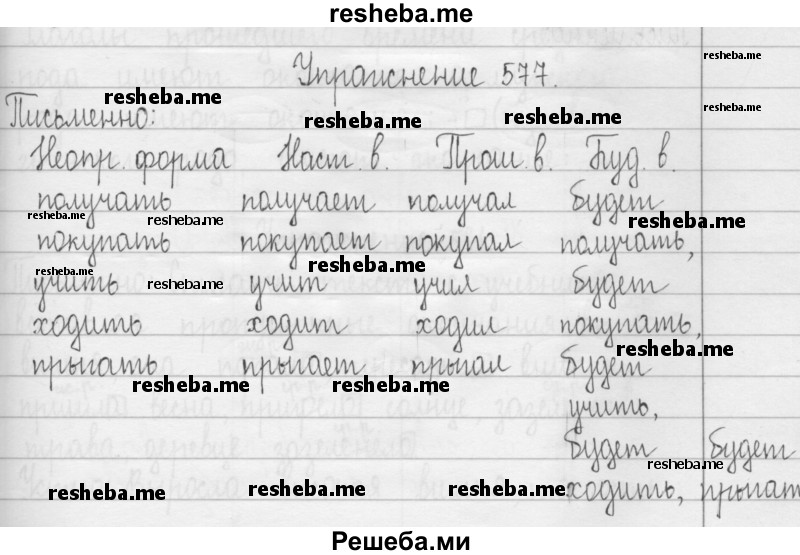 resheba.me
resheba.me
Упражнение 577.
resheba.me
resheba.me
Письменно:
resheba.me
resheba.me
Неопр. форма Наст. в. Прош. в. Буд. в.
получать получает получал будет
resheba.me
resheba.me
resheba.me
покупать покупает покупал получать,
resheba.me
resheba.me
resheba.me
учить учит учил будет
ходить ходит ходил покупать,
resheba.me
прыгать прыгает прыгал будет
resheba.me
resheba.me
учить,
будет будет
resheba.me
resheba.me
resheba.me
resheba.me
ходить, прыгат
Решеба.ми